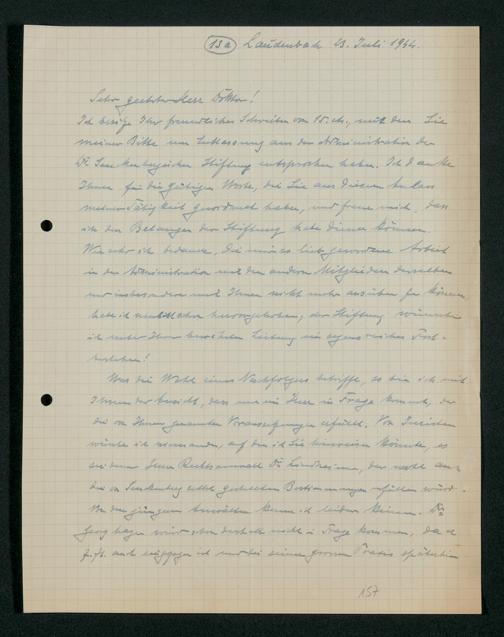 13a Laudenbach 23. Juli 1944.
Sehr geehrter Herr Doktor!
Ich besitze Ihr freundliches Schreiben vom 15. ds., mit dem Sie
meiner Bitte um Entlassung aus der Administration der
Dr. Senckenbergischen Stiftung entsprochen haben. Ich danke
Ihnen für die gütigen Worte, die Sie aus diesem Anlass
meiner Tätigkeit gewidmet haben, und freue mich, dass
ich den Belangen der Stiftung habe dienen können.
Wie sehr ich bedaure, die mir so lieb gewordene Arbeit
in der Administration mit den anderen Mitgliedern derselben
und insbesondere mit Ihnen nicht mehr ausüben zu können,
habe ich hervorgehoben; der Stiftung wünsche
ich unter Ihrer bewährten Leitung ein segensreiches Fort-
bestehen!
Was die Wahl eines Nachfolgers betrifft, so bin ich mit
Ihnen der Ansicht, dass nur ein Herr in Frage kommt, der
die von Ihnen genannten Voraussetzungen erfüllt. Von Juristen
wüsste ich niemanden, auf den ich Sie hinweisen könnte, es
sei denn Herr Rechtsanwalt Dr. der wohl auch
die von Senckenberg selbst gedachten Bestimmungen erfüllen würde.
Von den jüngeren Anwälten kenne ich leider keinen. Dr.
Georg Hagen wird schon deshalb nicht in Frage kommen, da er
z. Zt. auch und seine grosse Praxis späterhin
157